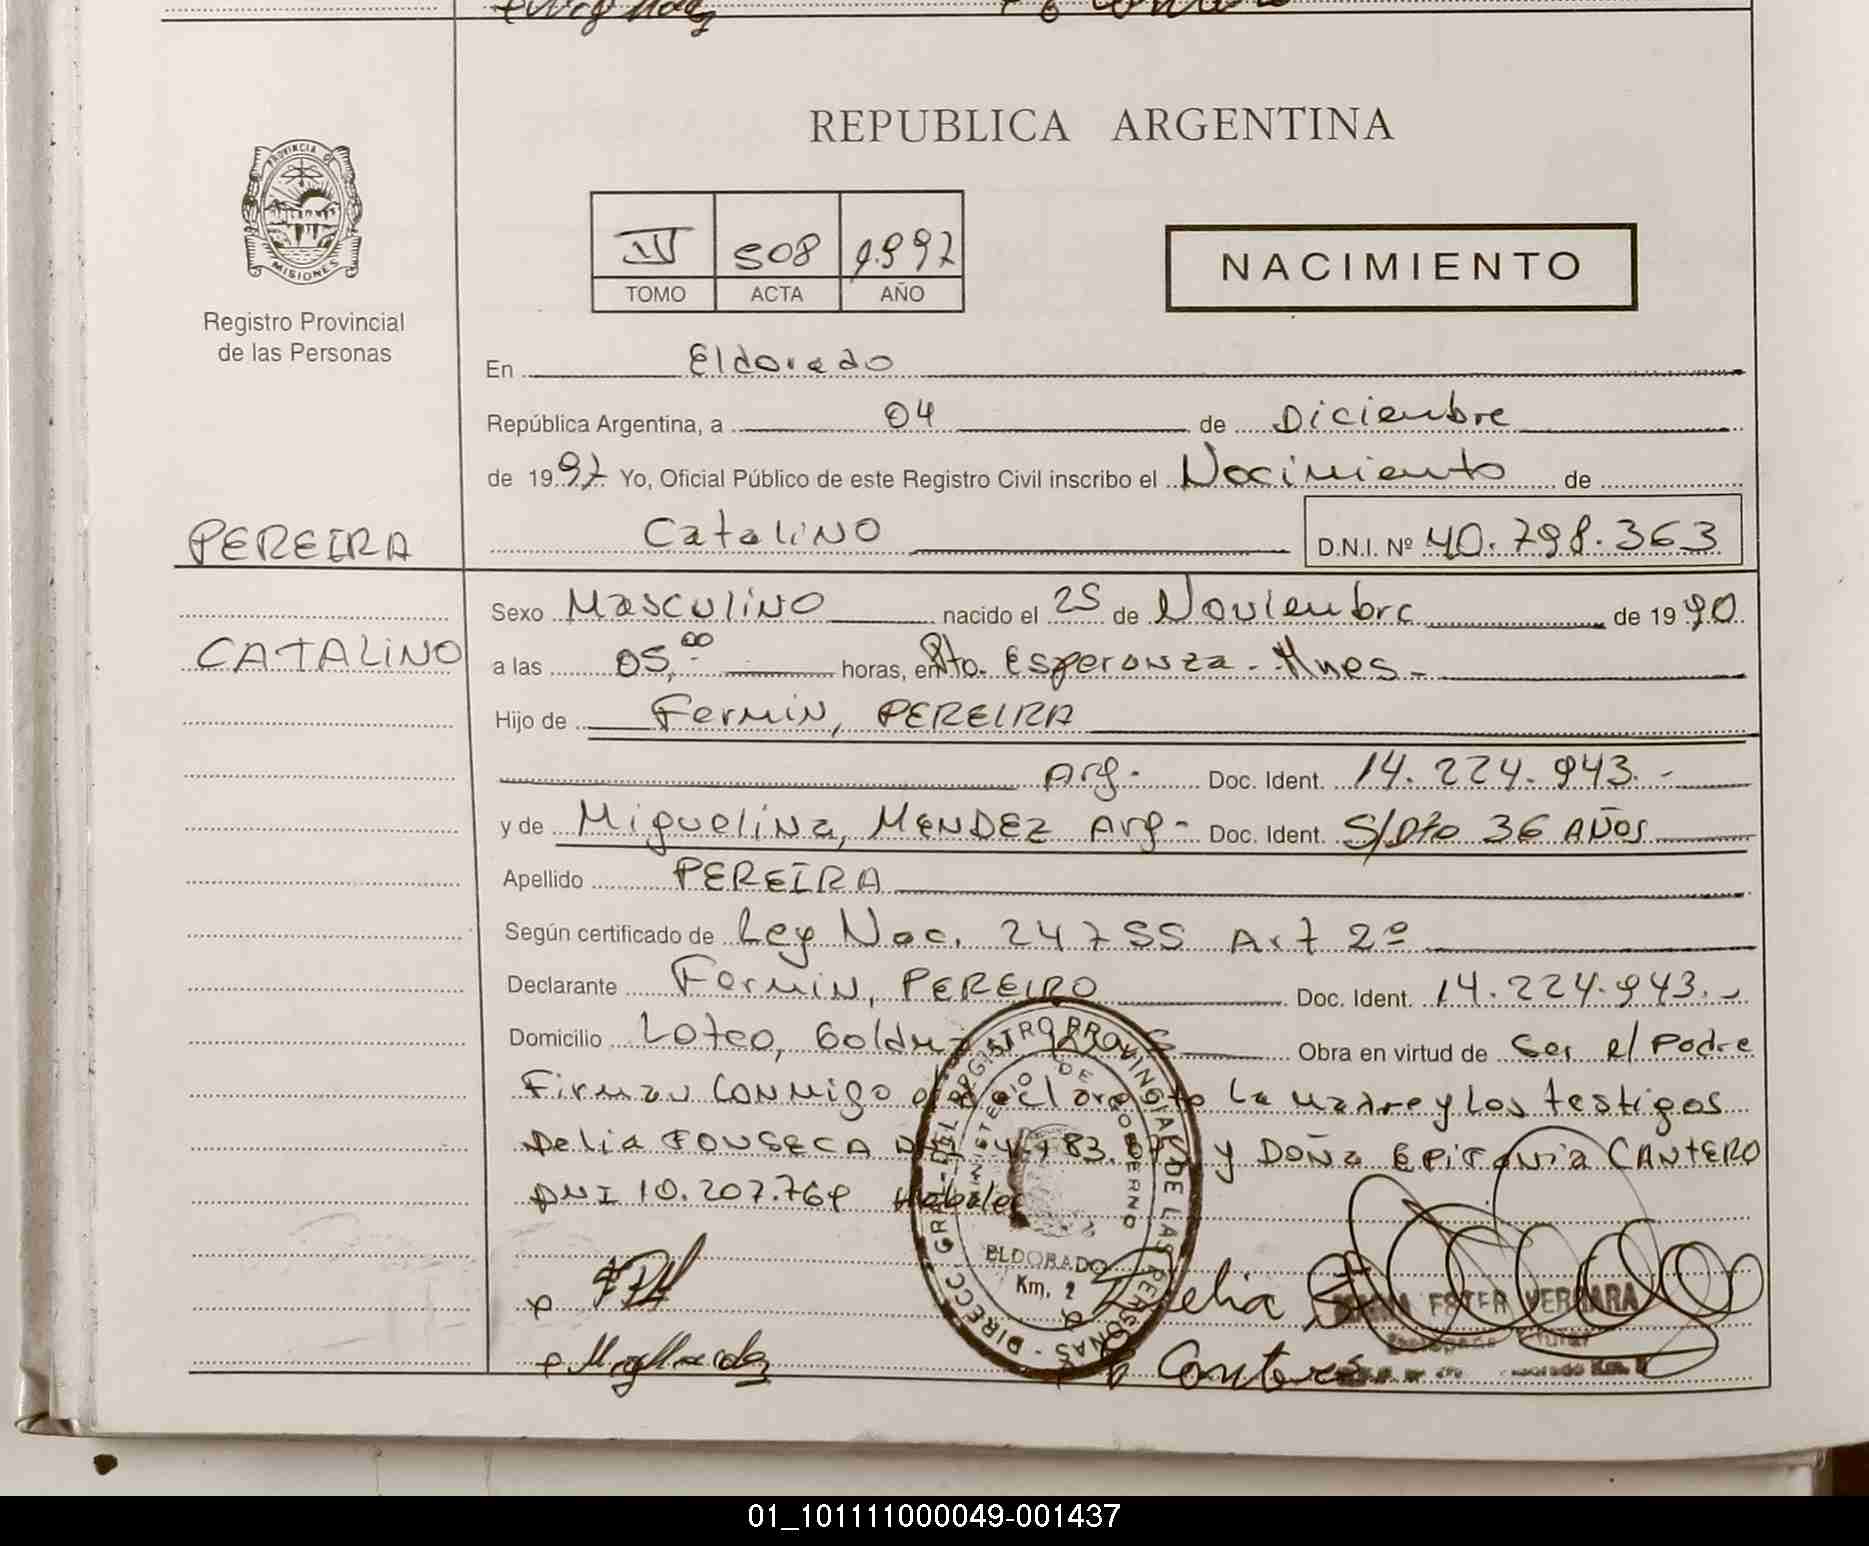 REPUBLICA ARGENTINA
PROVINCIA DE
MISIONES
Registro Provincial
de las Personas
IV 508 1.997
TOMO ACTA AÑO
NACIMIENTO
En Eldorado
República Argentina, a 04 de Diciembre
de 1997 Yo, Oficial Público de este Registro Civil inscribo el Nacimiento de
PEREIRA
Catalino D.N.I. Nº 40.798.363
Sexo Masculino nacido el 25 de Noviembre de 1990
CATALINO
a las 05,00 horas, en Pto. Esperanza - Mnes -
Hijo de Fermin, PEREIRA
Arg - Doc. Ident. 14.224.943. -
y de Miguelina, MENDEZ Arg - Doc. Ident. S/Dto 36 AÑOS
Apellido PEREIRA
Según certificado de Ley Nac. 24755 Art 2º
Declarante Fermin, PEREIRO Doc. Ident. 14.224.943. -
Domicilio Loteo, Obra en virtud de Ser el Padre
Firman Conmigo el declarante La Madre y Los testigos
Delia FONSECA y DOÑA Epifania CANTERO
DNI 10.207.769 Habiles
DIRECC. GRAL. DEL REGISTRO PROVINCIAL DE LAS PERSONAS
MINISTERIO DE GOBIERNO
ELDORADO
Km. 2
Delia
ESTER VERGARA
Titular
Cantero
01_101111000049-001437